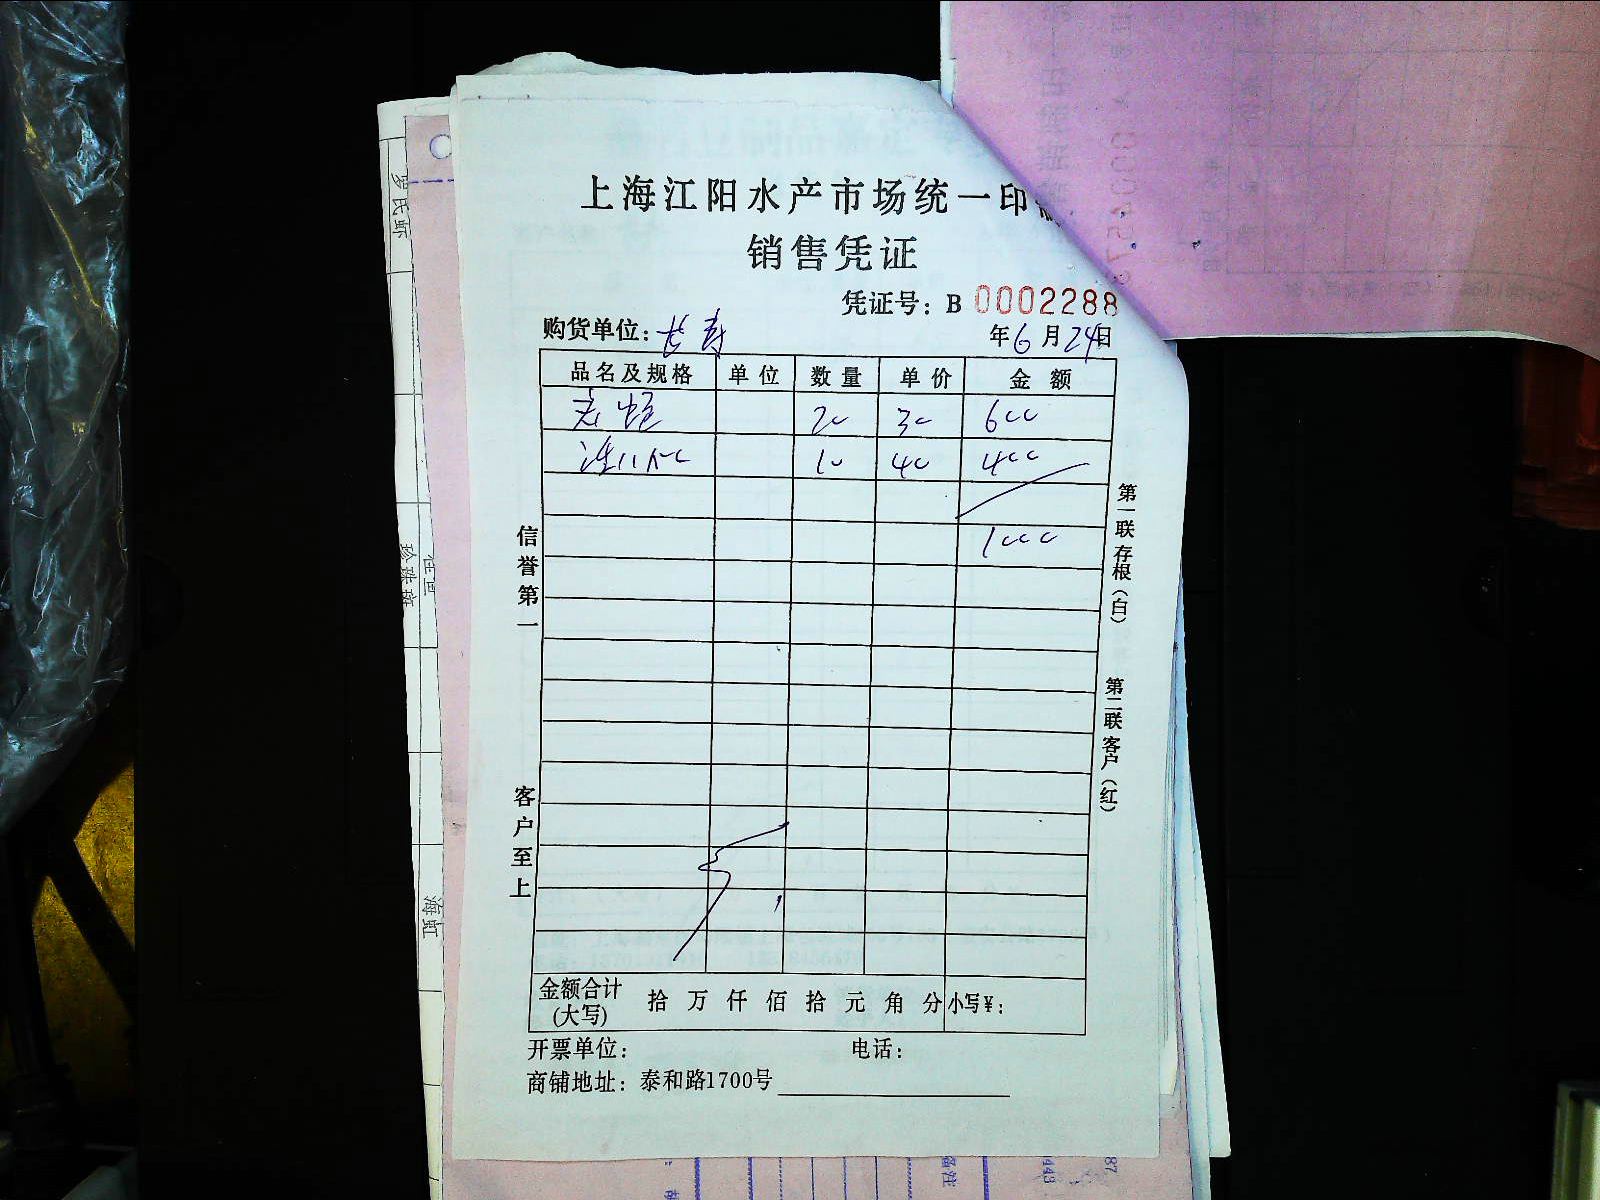 上海江阳水产市场统一印制
销售凭证
凭证号：B 0002288
购货单位：长寿 年6月24日
品名及规格 单位 数量 单价 金额
20 30 600
10 40 400
1000
信誉第一
客户至上
第一联存根（白）
第二联客户（红）
金额合计(大写) 拾 万 仟 佰 拾 元 角 分 小写¥：
开票单位： 电话：
商铺地址：泰和路1700号
罗氏虾
珍珠斑
海虹
备注